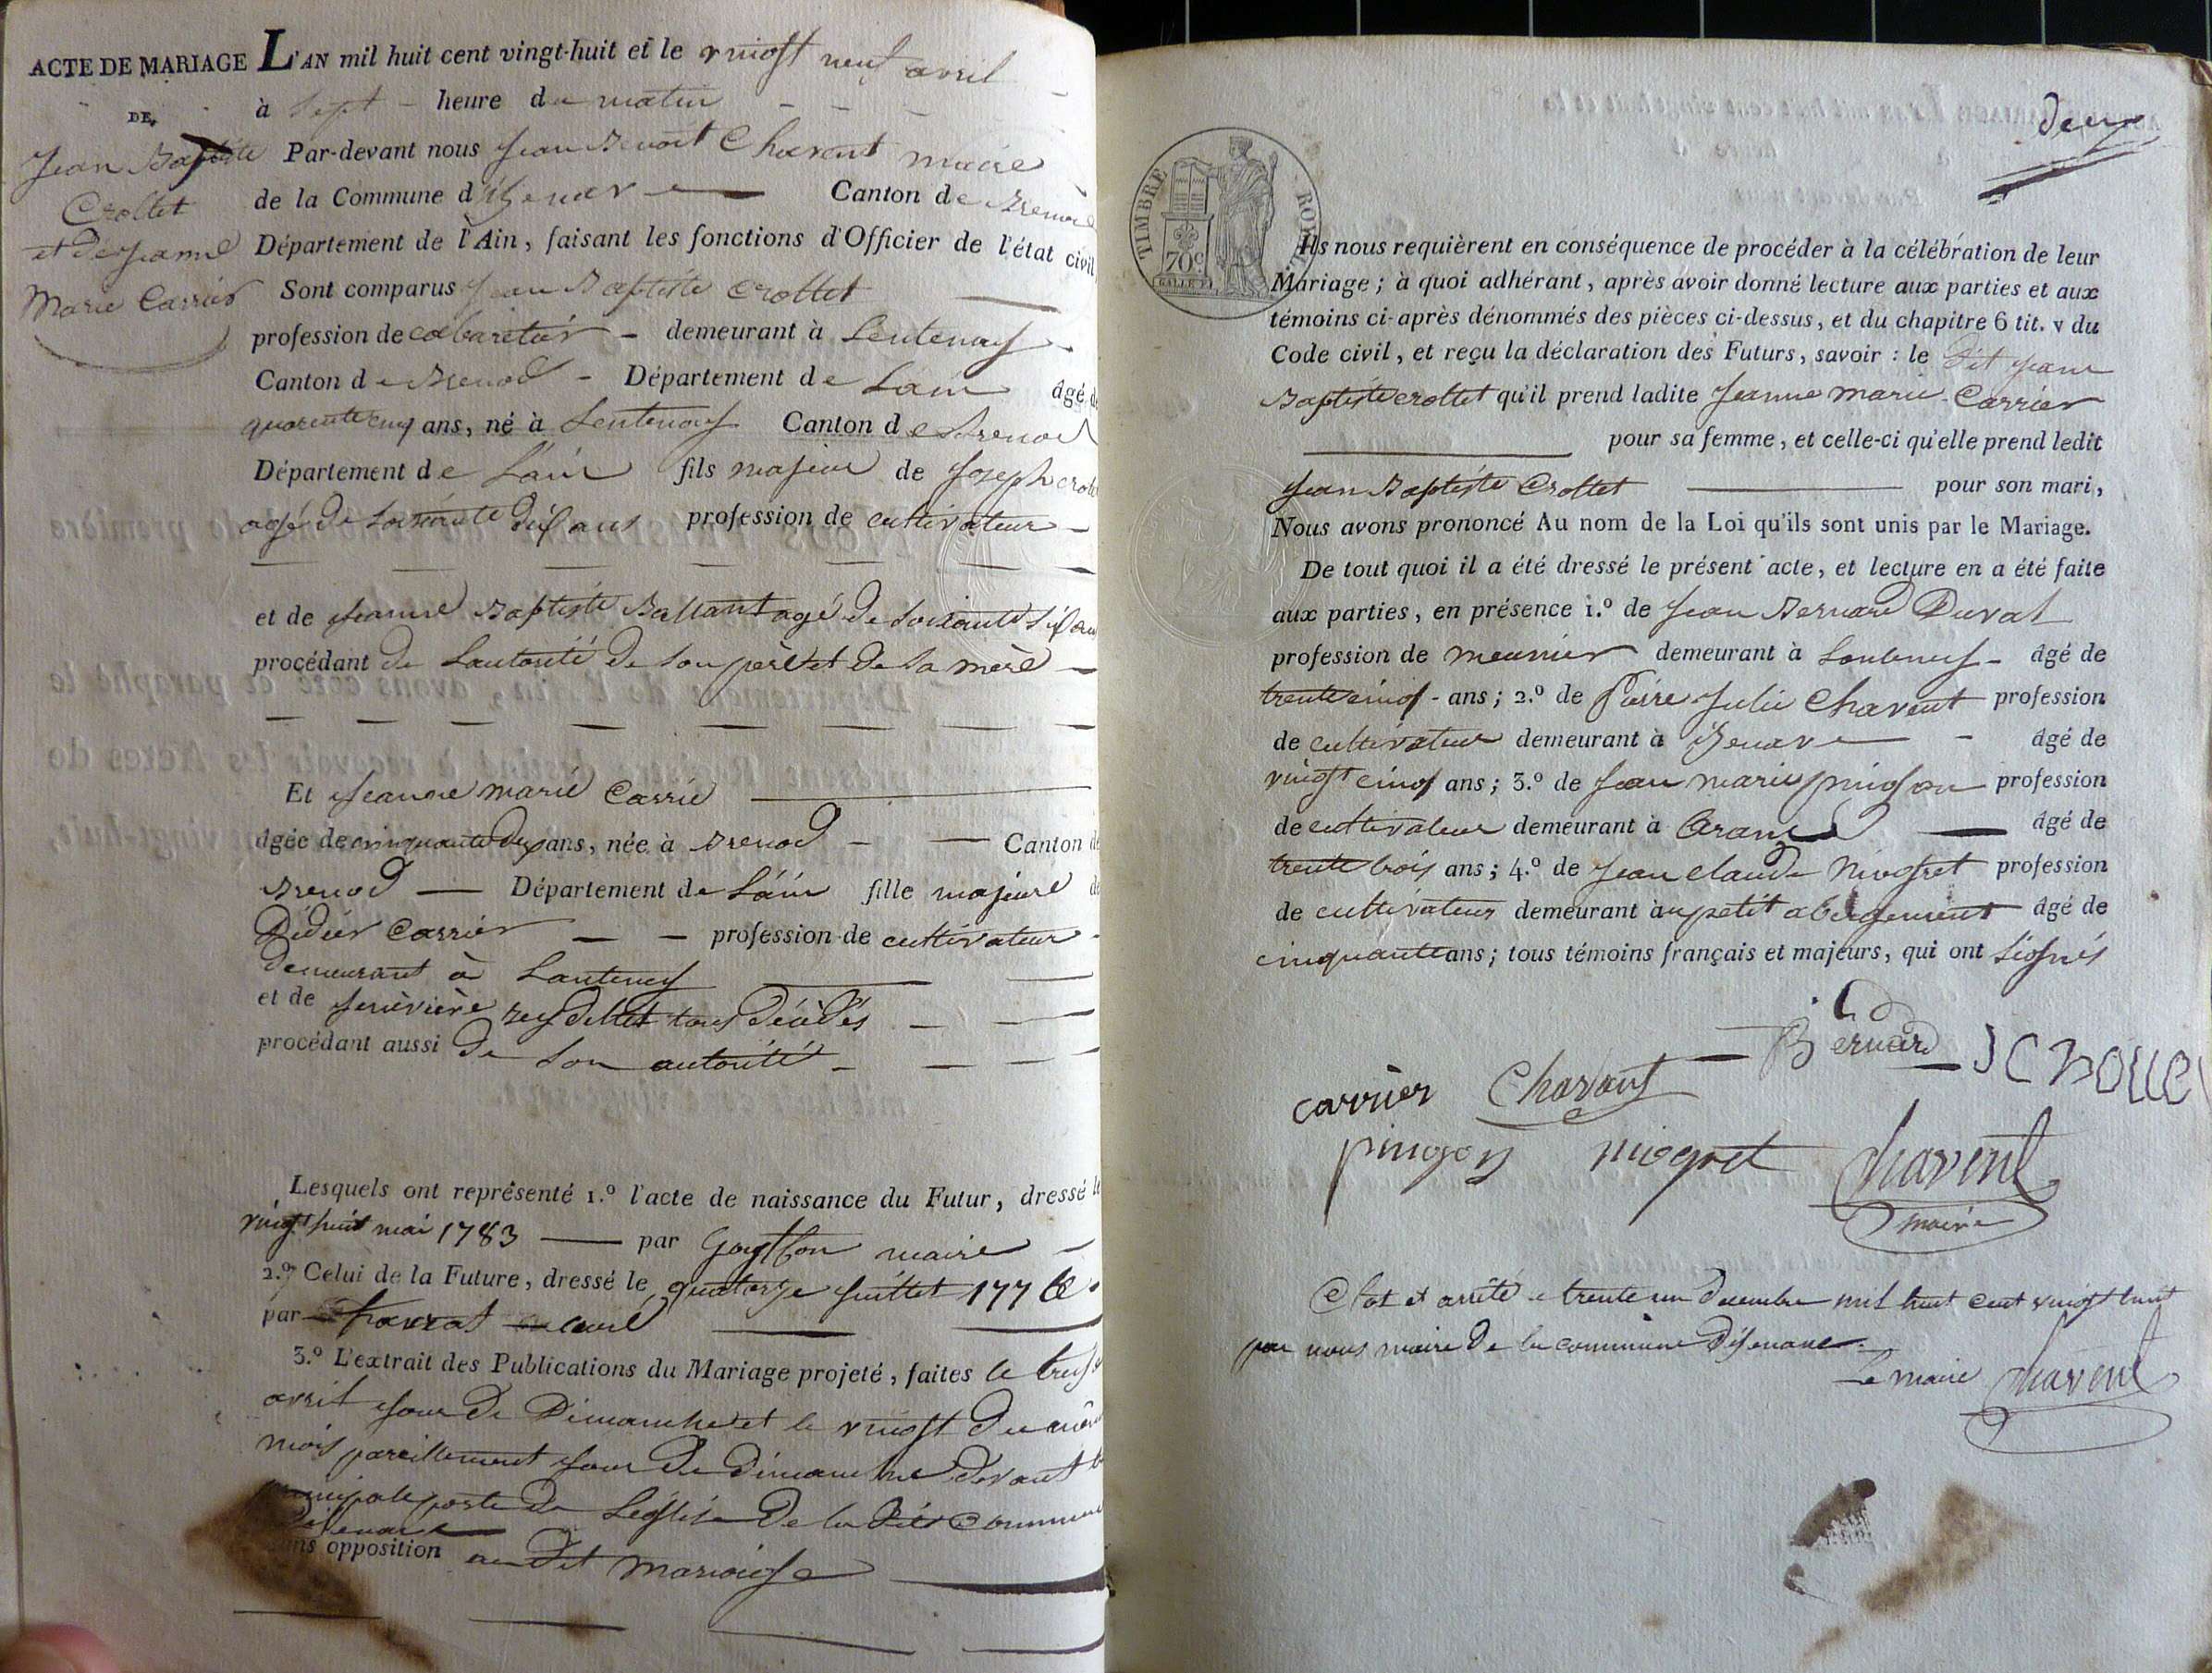 ACTE DE MARIAGE
DE
Jean Baptiste
Crottet
et de Jeanne
Marie Carrier
L'AN mil huit cent vingt-huit et le vingt neuf avril
à Sept heure du matin
Par-devant nous Jean Benoit Chavent maire
de la Commune d'Izenave Canton de Brenod
Département de l'Ain, faisant les fonctions d'Officier de l'état civil
Sont comparus Jean Baptiste Crottet
profession de cabaretier demeurant à Lentenay
Canton de Brenod Département de Lain âgé de
quarente cinq ans, né à Lentenay Canton de Brenod
Département de Lain fils majeur de Joseph
agé de soixante dix ans profession de cultivateur
et de Jeanne Baptiste Ballant agé de soixante
procédant de Lautorité de son père et de sa mère
Et Jeanne marie Carrié
âgée de cinquante deux ans, née à Brenod Canton de
Brenod Département de Láin fille majeure de
Didier Carrier profession de cultivateur
demeurant à Lantenay
et de tous décédés
procédant aussi de son autorité
Lesquels ont représenté 1.º l'acte de naissance du Futur, dressé le
vingt huit mai 1783 par maire
2.º Celui de la Future, dressé le quatorze juillet 1776
par curé
3.º L'extrait des Publications du Mariage projeté, faites le treize
avril jour de Dimanche et le vingt du même
mois pareillement jour de dimanche devant la
principale porte de Léglise de la dite Commune
d'izenave
sans opposition au dit mariage
deux
TIMBRE ROYAL
70c
Ils nous requièrent en conséquence de procéder à la célébration de leur
Mariage; à quoi adhérant, après avoir donné lecture aux parties et aux
témoins ci-après dénommés des pièces ci-dessus, et du chapitre 6 tit. v du
Code civil, et reçu la déclaration des Futurs, savoir : le dit jean
Baptiste crottet qu'il prend ladite Jeanne marie Carrier
pour sa femme, et celle-ci qu'elle prend ledit
Jean Baptiste Crottet pour son mari,
Nous avons prononcé Au nom de la Loi qu'ils sont unis par le Mariage.
De tout quoi il a été dressé le présent acte, et lecture en a été faite
aux parties, en présence 1.º de Jean Bernard Duval
profession de meunier demeurant à Lantenay âgé de
trente cinq ans; 2.º de Pierre Julie Chavent profession
de cultivateur demeurant à Izenave âgé de
vingt cinq ans; 3.º de Jean marie pingon profession
de cultivateur demeurant à Aranc âgé de
trente trois ans; 4.º de Jean claude Niogret profession
de cultivateur demeurant au petit abergement âgé de
cinquante ans; tous témoins français et majeurs, qui ont signés
Bernard
carrier Chavant
pingon niogret Chavent
maire
Clos et arrêté le trente un décembre mil huit cent vingt huit
par nous maire de la commune d'izenave
Le maire Chavent